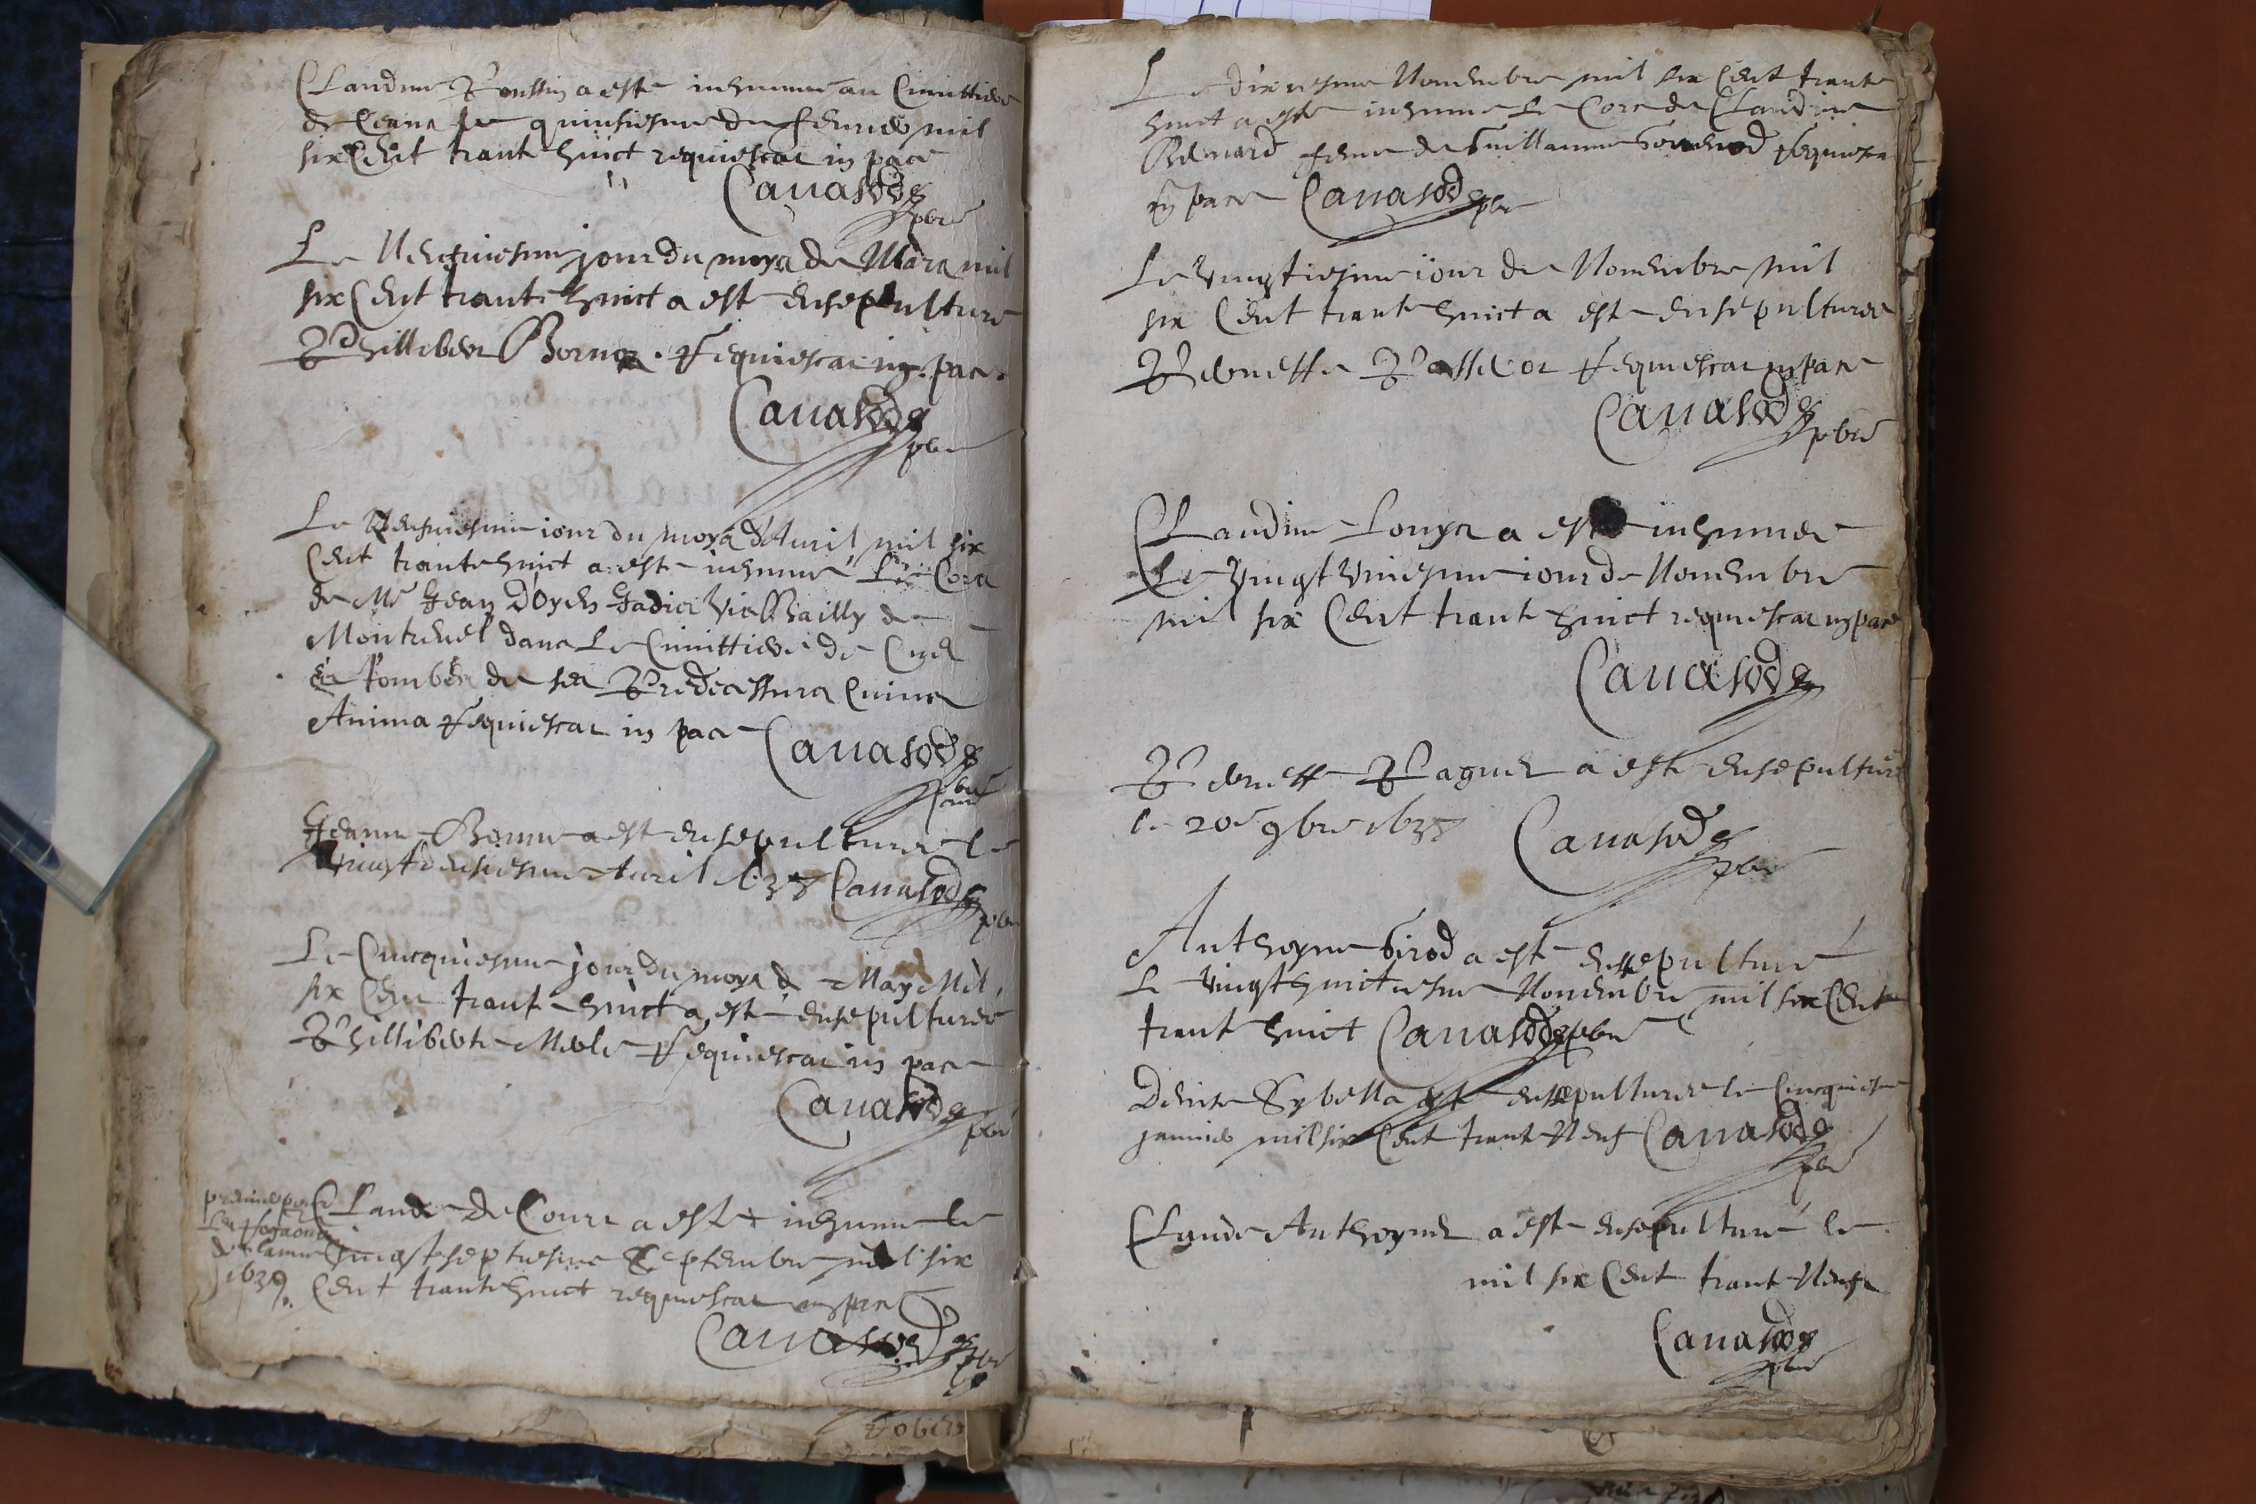 Claudine Poussin a este inhumee au Cimittiere
de Ceans le quinsiesme de febvrier mil
six Cent trante huict requiescat in pace
Cavasod
pbre
Le Unsiesme jour du moys de Mars mil
six Cent trante huict a este ensepulturé
Phillibert requiescat in pace.
Cavasod
pbre
Le iour du moys d'Avril mil six
Cent trante huict a este inhumé Le Cors
de Me Jean D'Oyen Jadis Bailly de
Montrevel dans Le Cimittiere de
en Tombes de ses Predecesseurs Cuius
Anima requiescat in pace Cavasod
pbre
curé
Jeanne Bonne a est ensepulturee le
vingt Avril 1638 Cavasod
pbre
Le Cincquiesme jour du moys de May Mil
six Cent trante huict a este ensepulturee
Phillibert Merle requiescat in pace
Cavasod
pbre
Claude De Cours a este inhumé le
vingtseptiesme Septembre mil six
de lannee
1639. Cent trante huict requiescat in pace
Cavasod
pbre
Le dixiesme Novembre mil six Cent trante
huict a este inhume Le Cors de Claudine
Bernard feme de Guillaume requiescat
in pace Cavasod pbre
Le Vingtiesme iour de Novembre mil
six Cent trante huict a este ensepulturee
Pernette requiescat in pace
Cavasod
pbre
Claudine Louys a este inhumee
Le Vingt Uniesme iour de Novembre
mil six Cent trante huict requiescat in pace
Cavasod
Pernette Paguet a este ensepulturé
le 20e 9bre 1638 Cavasod
pbre
Anthoyne Girod a este ensepulturé
Le Vingthuictiesme Novembre mil six Cent
trante huict Cavasod pbre
Denise Sybella est ensepulturee le Cincquiesme
janvier mil six Cent trante Neuf Cavasod
pbre
Claude Anthoynet a este ensepulturé le
mil six Cent trante Neuf
Cavasod
pbre